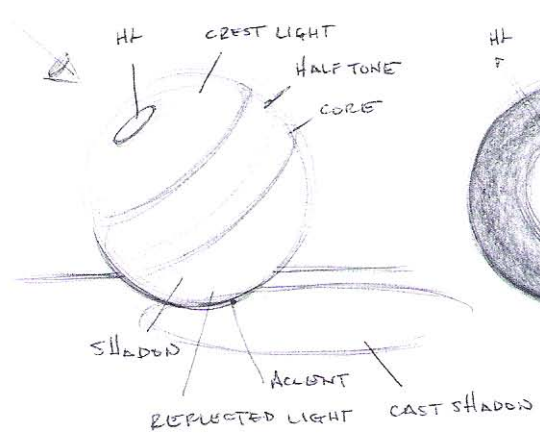 HL
CREST LIGHT
HL
HALF TONE
CORE
SHADOW
ACCENT
REFLECTED LIGHT
CAST SHADOW